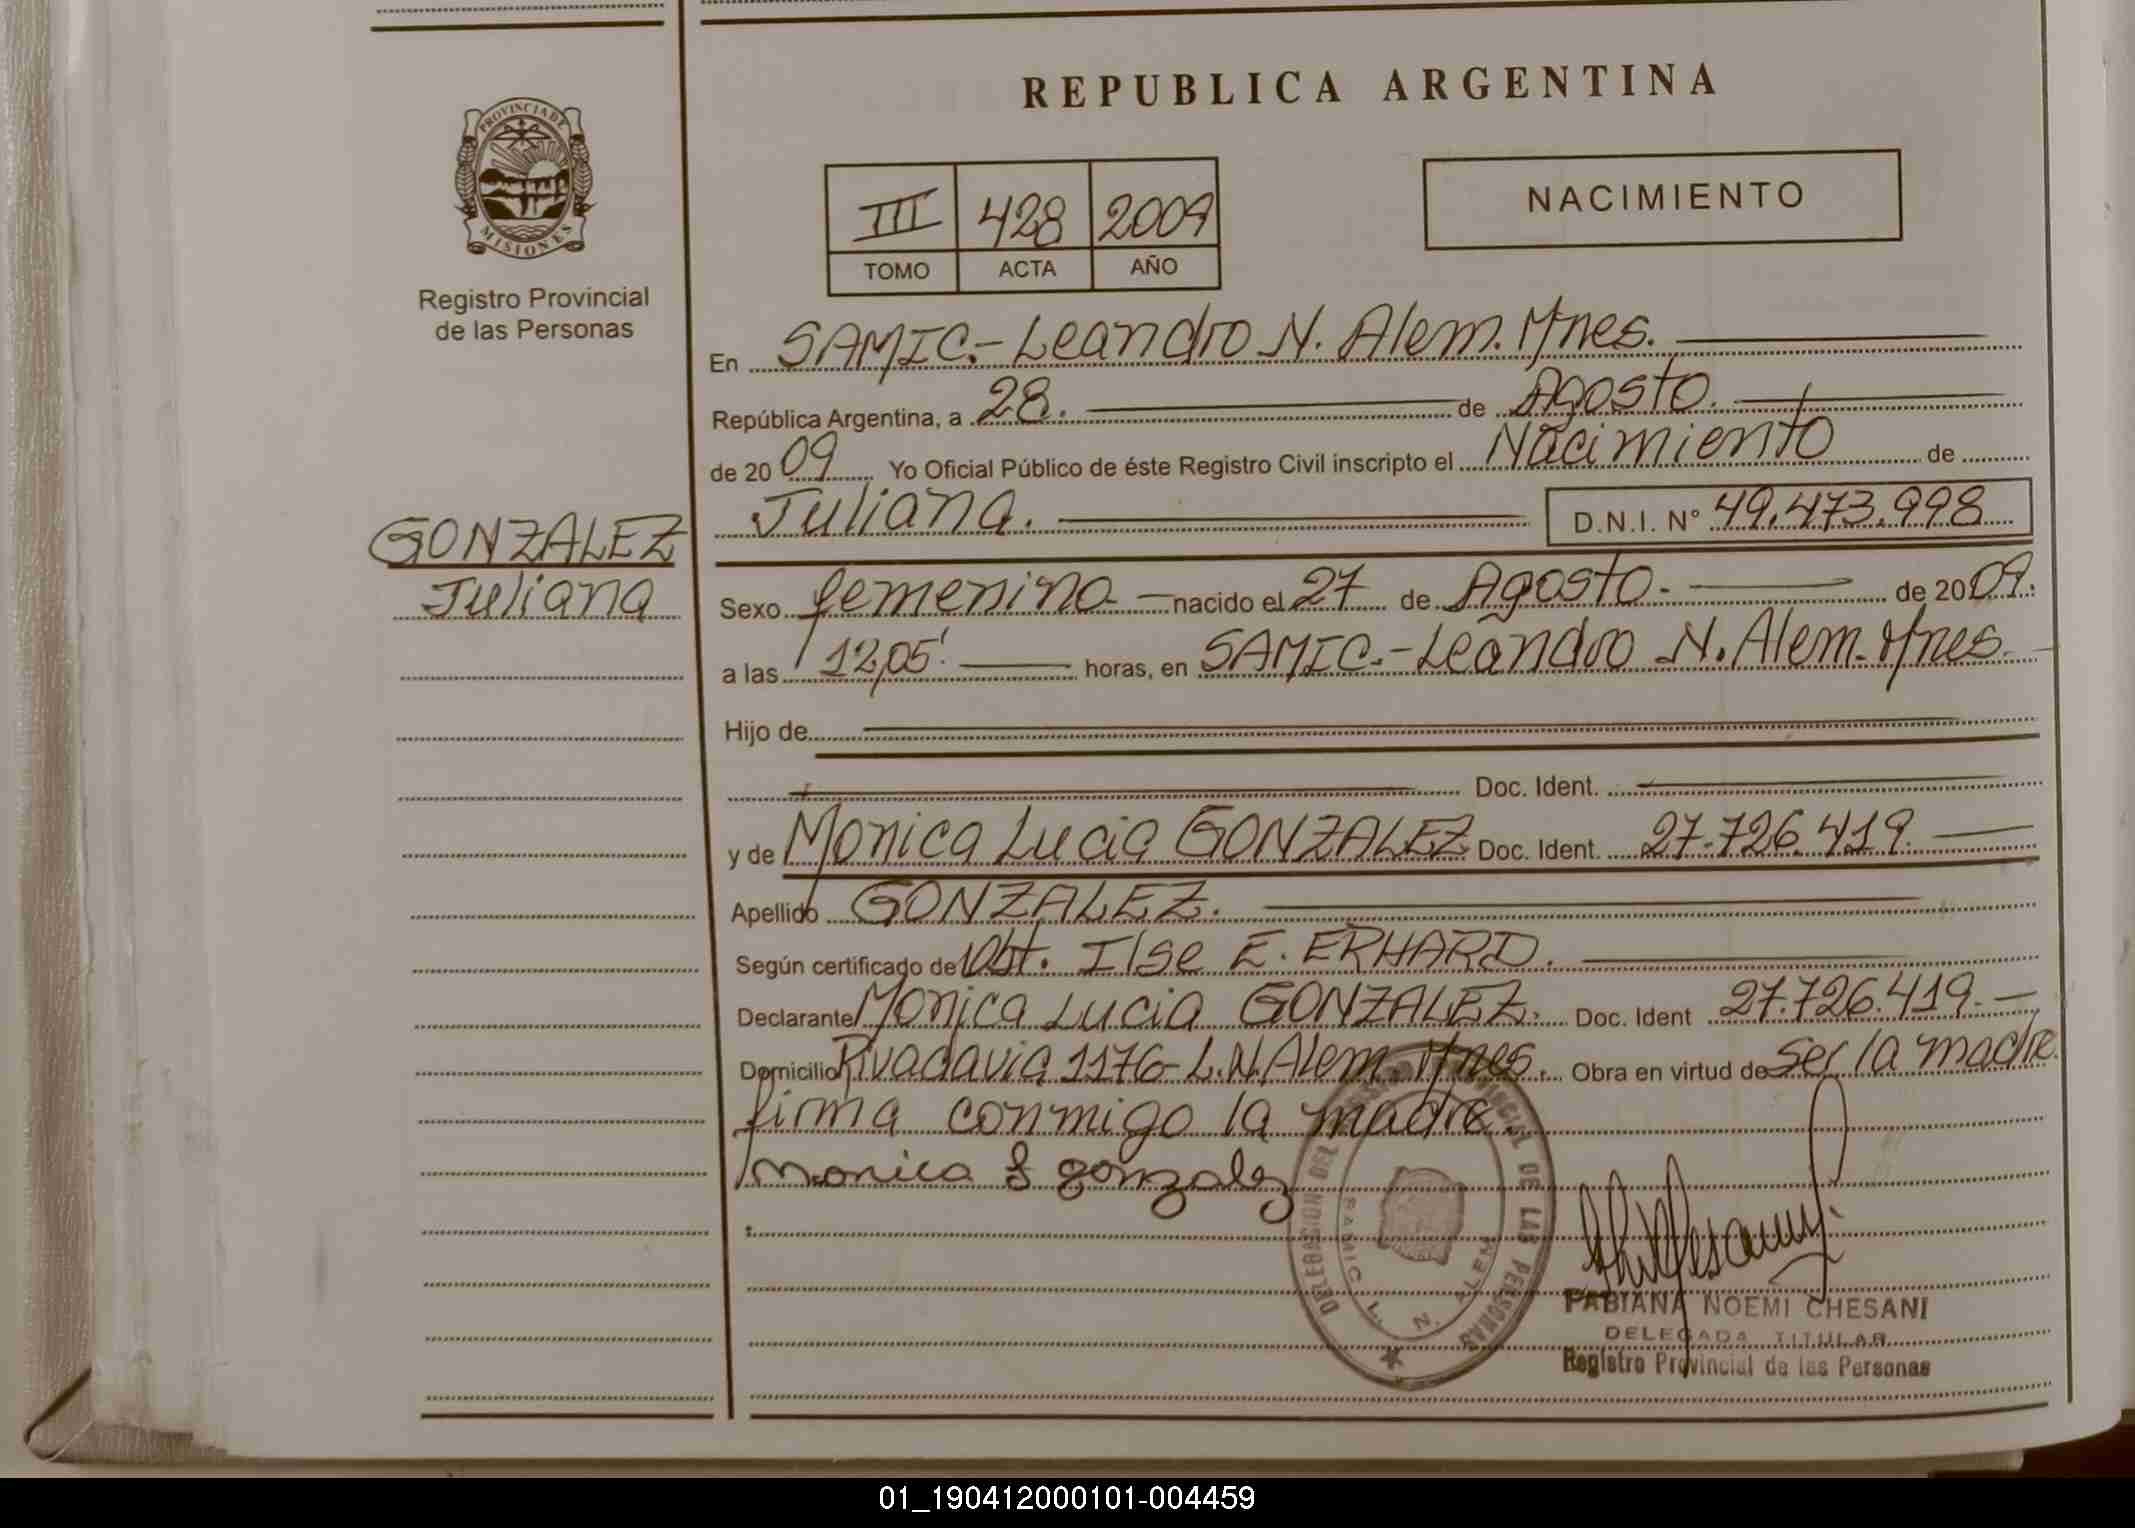 REPUBLICA ARGENTINA
PROVINCIA DE
MISIONES
Registro Provincial
de las Personas
III 428 2009
TOMO ACTA AÑO
NACIMIENTO
En SAMIC.- Leandro N. Alem. Mnes.
República Argentina, a 28. de Agosto.
de 2009 Yo Oficial Público de éste Registro Civil inscripto el Nacimiento de
Juliana. D.N.I. N° 49.473.998
GONZALEZ
Juliana
Sexo femenino nacido el 27 de Agosto.- de 2009.
a las 12,05' horas, en SAMIC.- Leandro N. Alem. Mnes.
Hijo de
Doc. Ident.
y de Monica Lucia GONZALEZ Doc. Ident. 27.726.419.
Apellido GONZALEZ.
Según certificado de Obst. Ilse E. ERHARD.
Declarante Monica Lucia GONZALEZ. Doc. Ident 27.726.419.-
Domicilio Rivadavia 1176- L.N. Alem. Mnes. Obra en virtud de ser la madre.
firma conmigo la madre.
Monica L gonzalez
DELEGACION DEL REGISTRO PROVINCIAL DE LAS PERSONAS
SAMIC L. N. ALEM
FABIANA NOEMI CHESANI
DELEGADA TITULAR
Registro Provincial de las Personas
01_190412000101-004459